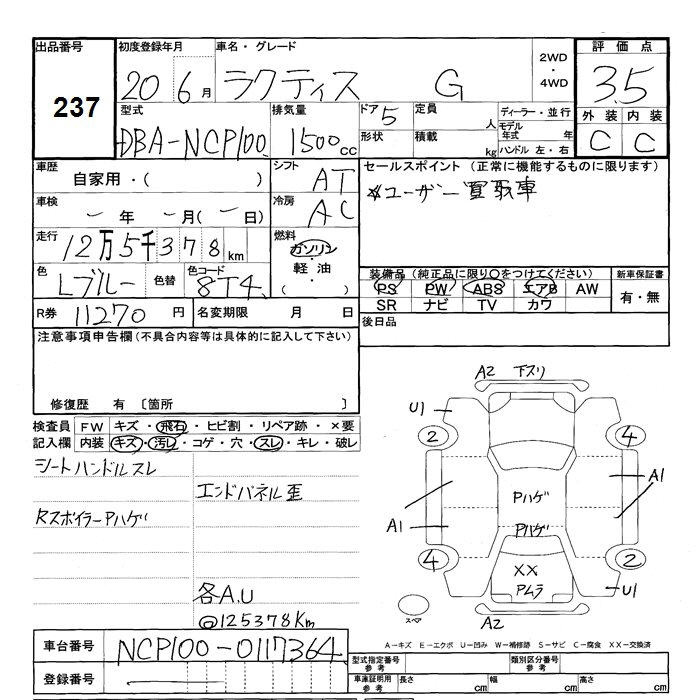 出品番号 初度登録年月 車名・グレード 2WD・4WD 評価点
237 20 6月 ラクティス G 3.5
型式 排気量 ドア 5 定員 人 ディーラー・並行 外装 内装
DBA-NCP100 1500cc 形状 積載 kg モデル年式 年 C C
ハンドル 左・右
車歴 シフト セールスポイント (正常に機能するものに限ります)
自家用・( ) AT ☆ユーザー買取車
車検 冷房
ー年 ー月(ー日) AC
走行 燃料
12万5千378km ガソリン・軽油・( )
色 色替 色コード 装備品(純正品に限り○をつけてください) 新車保証書
Lブルー 8T4 PS PW ABS エアB AW 有・無
SR ナビ TV カワ
R券 11270円 名変期限 月 日 後日品
注意事項申告欄(不具合内容等は具体的に記入して下さい)
修復歴 有 〔箇所 〕
検査員 FW キズ・飛石・ヒビ割・リペア跡・×要
記入欄 内装 キズ・汚レ・コゲ・穴・スレ・キレ・破レ
シートハンドルスレ
エンドパネル歪
RスポイラーPハゲ
各A.U
@125378Km
A2 下スリ
U1
2 4
A1
Pハゲ
A1 Pハゲ
4 2
XX
Pムラ U1
スペア A2
A－キズ E－エクボ U－凹み W－補修跡 S－サビ C－腐食 XX－交換済
車台番号 NCP100-0117364
型式指定番号 参考 類別区分番号 参考
登録番号 ー
車庫証明用 参考 長さ cm 幅 cm 高さ cm